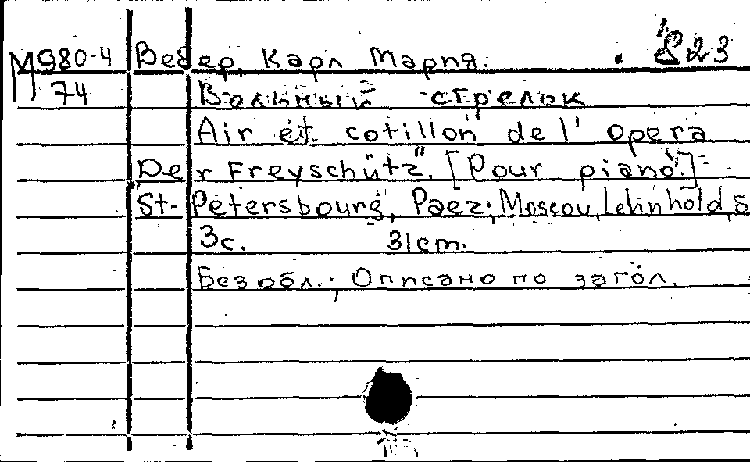 М980-4 Вебер, Карл Мария. 823
74 Вольный стрелок
Air et cotillon de l' opera
Der Freyschütz". [Pour piano.]
St-Petersbourg, Paez; Moscou, Lehnhold, s
3с. 31cm.
Без обл.; Описано по загол.